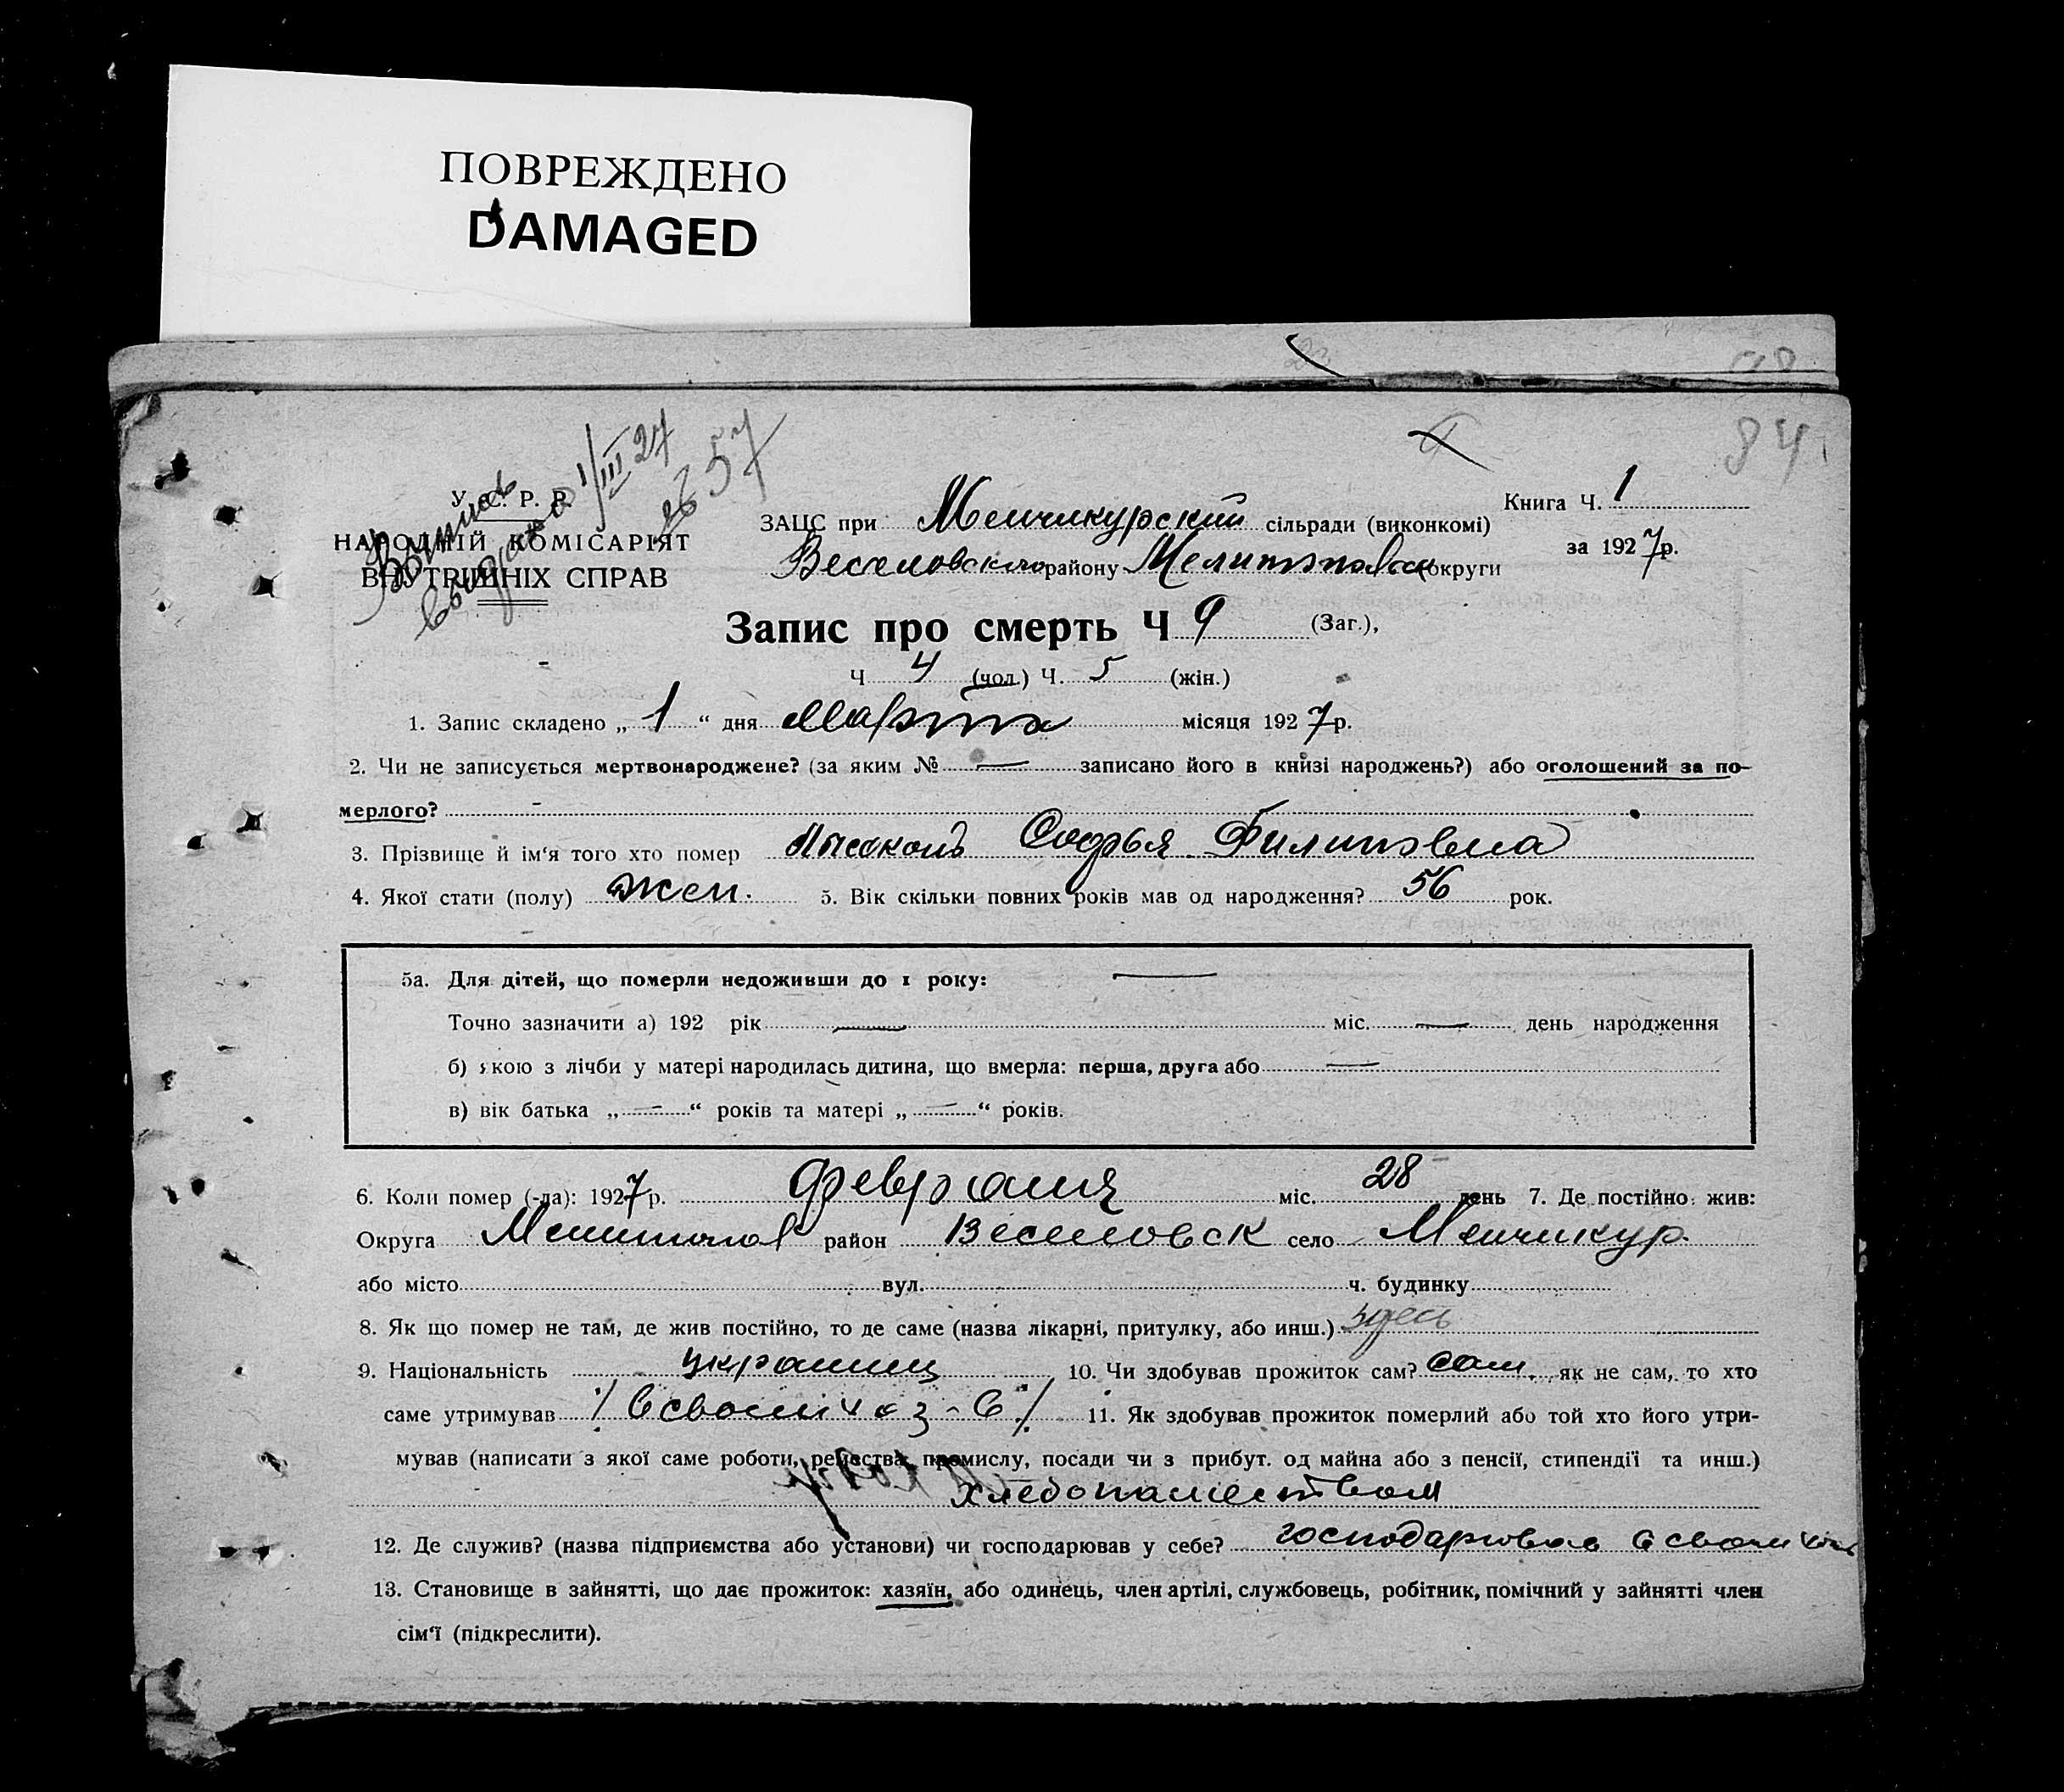 ПОВРЕЖДЕНО
DAMAGED
84
1/III 27
257
У. С. Р. Р.
НАРОДНІЙ КОМІСАРІЯТ
ВНУТРІШНІХ СПРАВ
Выпись
выдана
Книга Ч. 1
за 1927 р.
ЗАЦС при Менчикурский сільради (виконкомі)
Веселовского району Мелитопольск округи
Запис про смерть Ч 9 (Заг.),
Ч 4 (чол.) Ч. 5 (жін.)
1. Запис складено „ 1 “ дня Марта місяця 1927 р.
2. Чи не записується мертвонароджене? (за яким № — записано його в книзі народжень?) або оголошений за по-
мерлого? -
3. Прізвище й ім'я того хто помер Софья Филиповна
4. Якої стати (полу) жен. 5. Вік скільки повних років мав од народження? 56 рок.
5а. Для дітей, що померли недоживши до 1 року: —
Точно зазначити а) 192 рік — міс. — день народження
б) якою з лічби у матері народилась дитина, що вмерла: перша, друга або —
в) вік батька „ — “ років та матері „ — “ років.
6. Коли помер (-ла): 1927 р. февраля міс. 28 день 7. Де постійно жив:
Округа Мелитопол район Веселовск село Менчикур.
або місто вул. ч. будинку
8. Як що помер не там, де жив постійно, то де саме (назва лікарні, притулку, або инш.) здесь
9. Національність украинц 10. Чи здобував прожиток сам? сам, як не сам, то хто
саме утримував /в своем хоз-в/ 11. Як здобував прожиток померлий або той хто його утри-
мував (написати з якої саме роботи, ремества, промислу, посади чи з прибут. од майна або з пенсії, стипендії та инш.)
хлебопашеством
12. Де служив? (назва підприємства або установи) чи господарював у себе? господарював в своем хоз
13. Становище в зайнятті, що дає прожиток: хазяїн, або одинець, член артілі, службовець, робітник, помічний у зайнятті член
сім'ї (підкреслити).